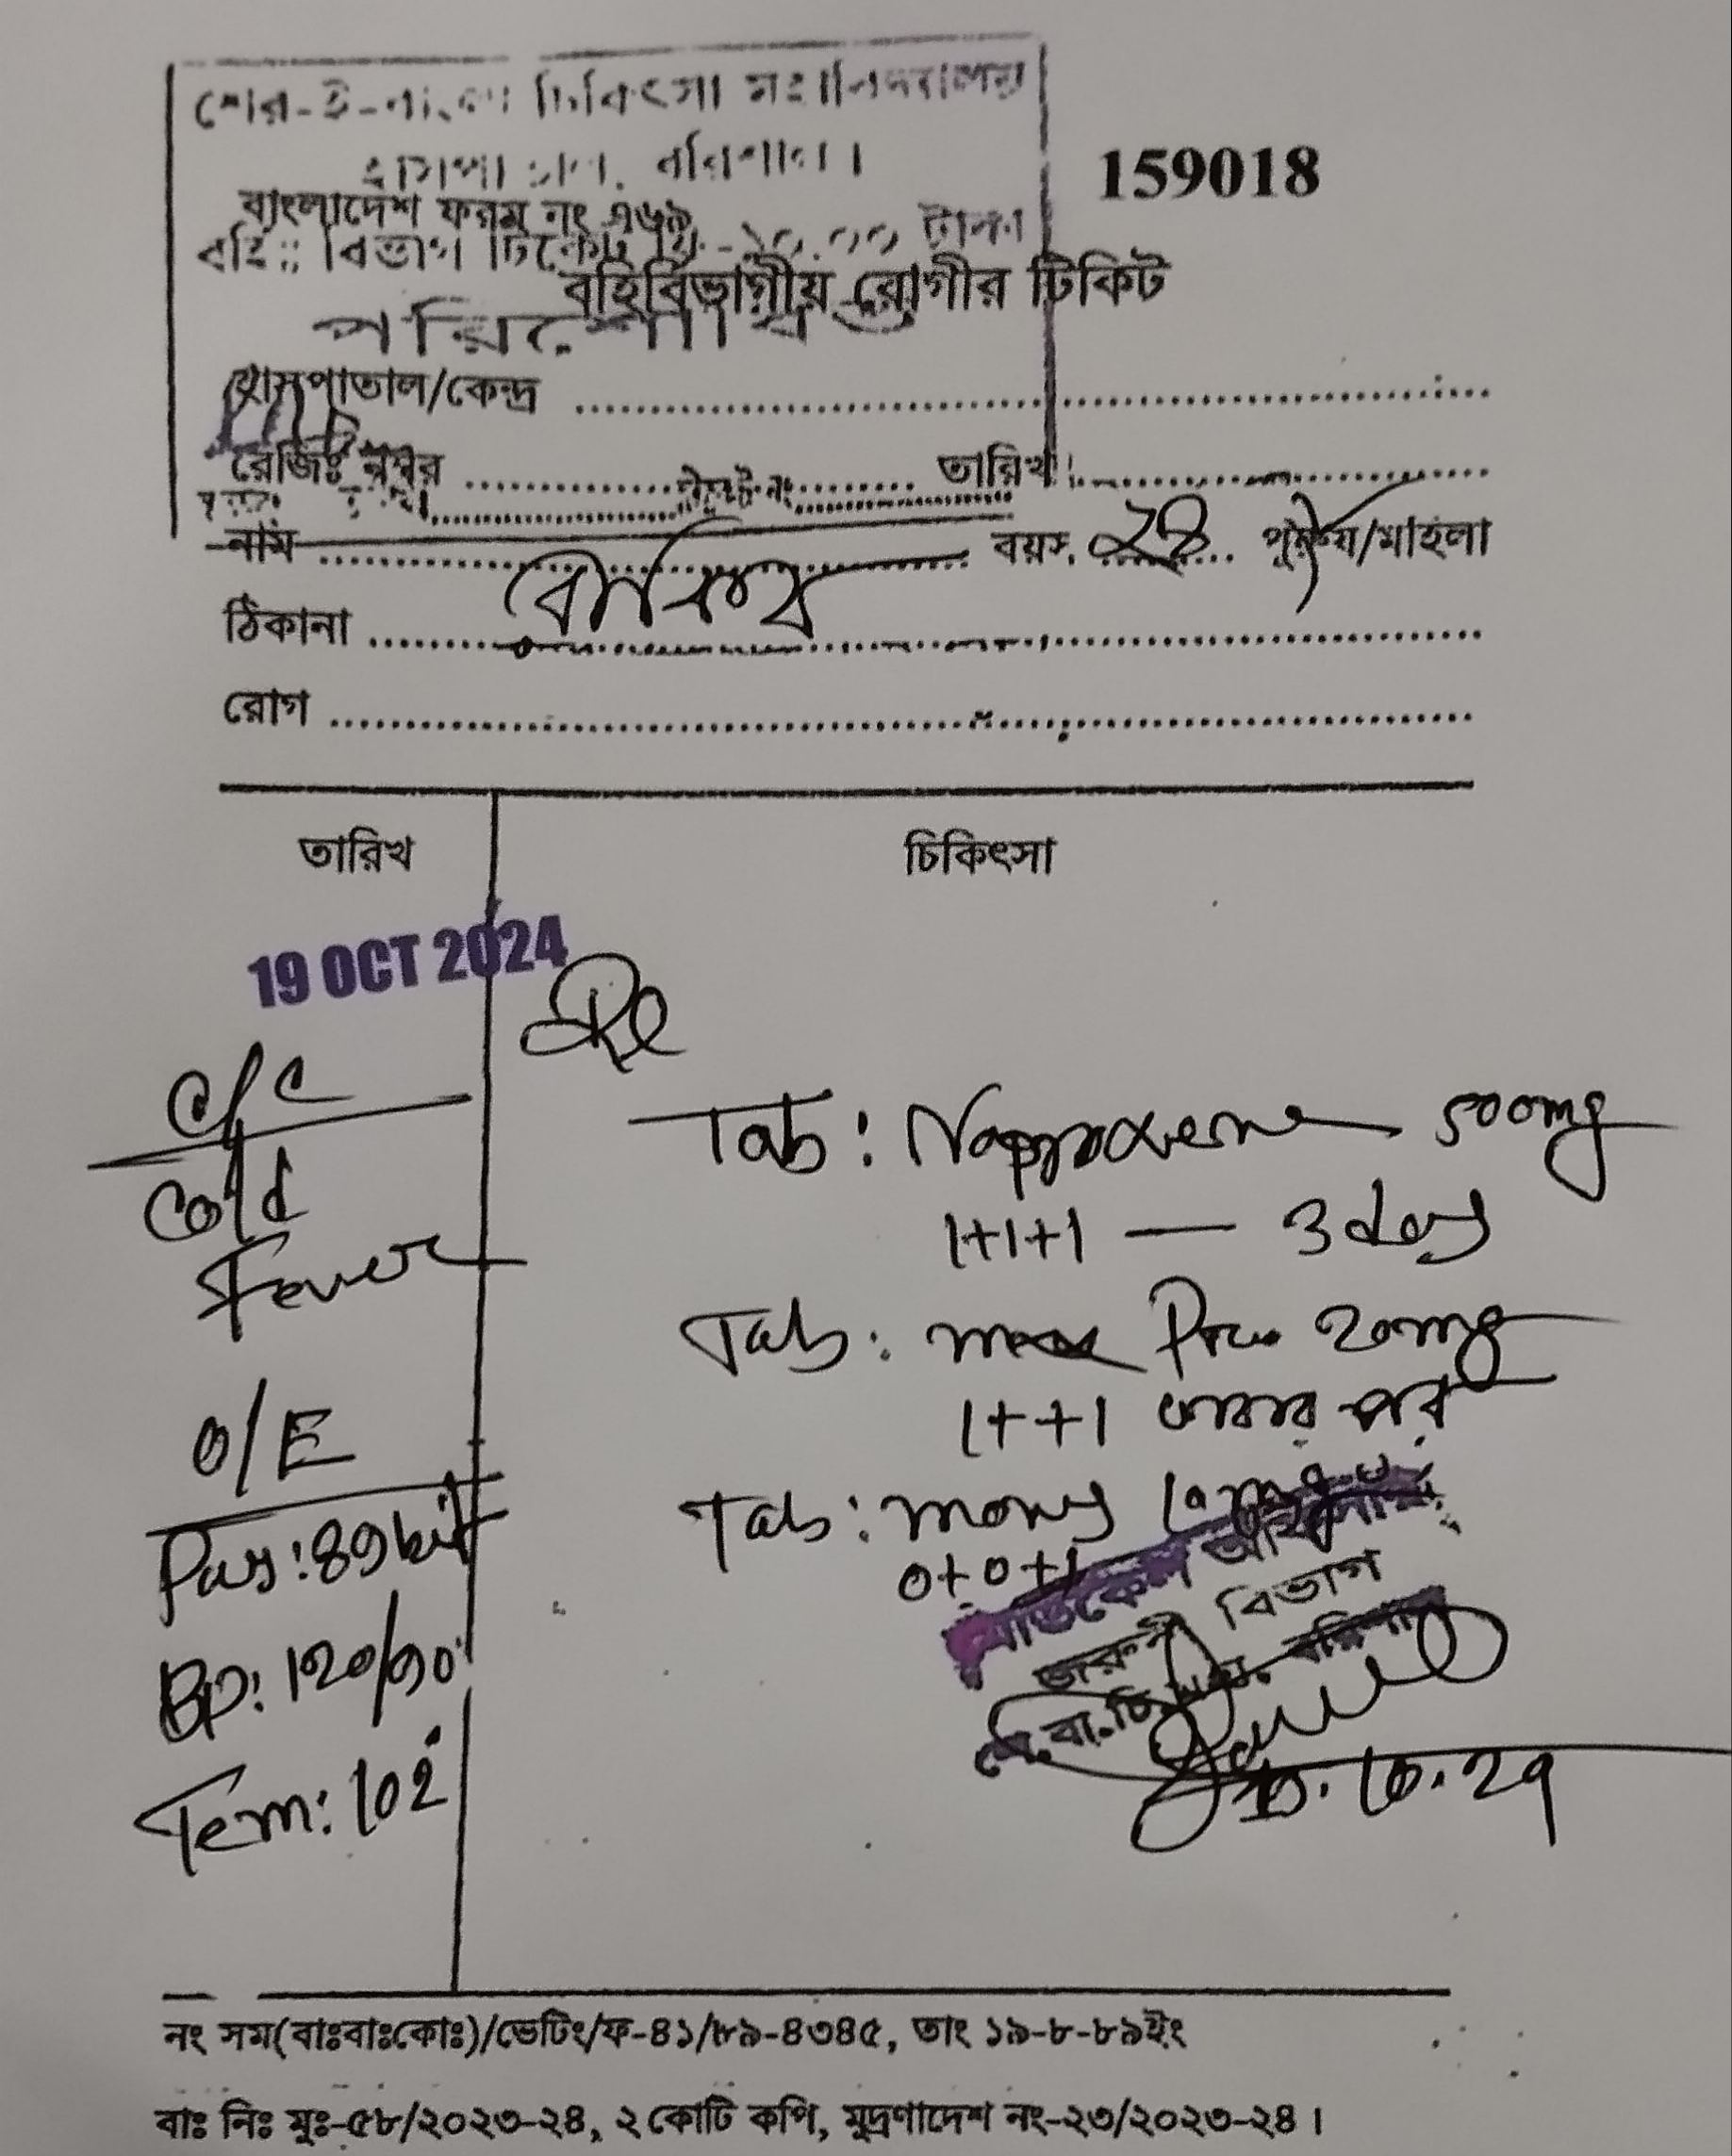 শের-ই-বাংলা চিকিৎসা মহাবিদ্যালয়
হাসপাতাল, বরিশাল।
159018
বাংলাদেশ ফরম নং ৭৬৯
বহিঃ বিভাগ টিকেট ফি-১০.০০ টাকা
বহির্বিভাগীয় রোগীর টিকিট
পরিশোধিত
হাসপাতাল/কেন্দ্র
রেজিঃ নম্বর তারিখ
নাম বয়স ২৪ পুরুষ/মহিলা
ঠিকানা
রোগ
তারিখ চিকিৎসা
19 OCT 2024
C/C
Cold
Fever
O/E
BP: 120/90
Tem: 102°
Tab: Naproxene 500mg
1+1+1 — 3 day
Tab: Pro 20mg
1++1
Tab: Monas 10mg
0+0+1
মেডিকেল অফিসার
জরুরী বিভাগ
শে.বা.চি.ম.হা. বরিশাল
নং সম(বাঃবাঃকোঃ)/ভেটিং/ফ-৪১/৮৯-৪৩৪৫, তাং ১৯-৮-৮৯ইং
বাঃ নিঃ মুঃ-৫৮/২০২৩-২৪, ২ কোটি কপি, মুদ্রণাদেশ নং-২৩/২০২৩-২৪।